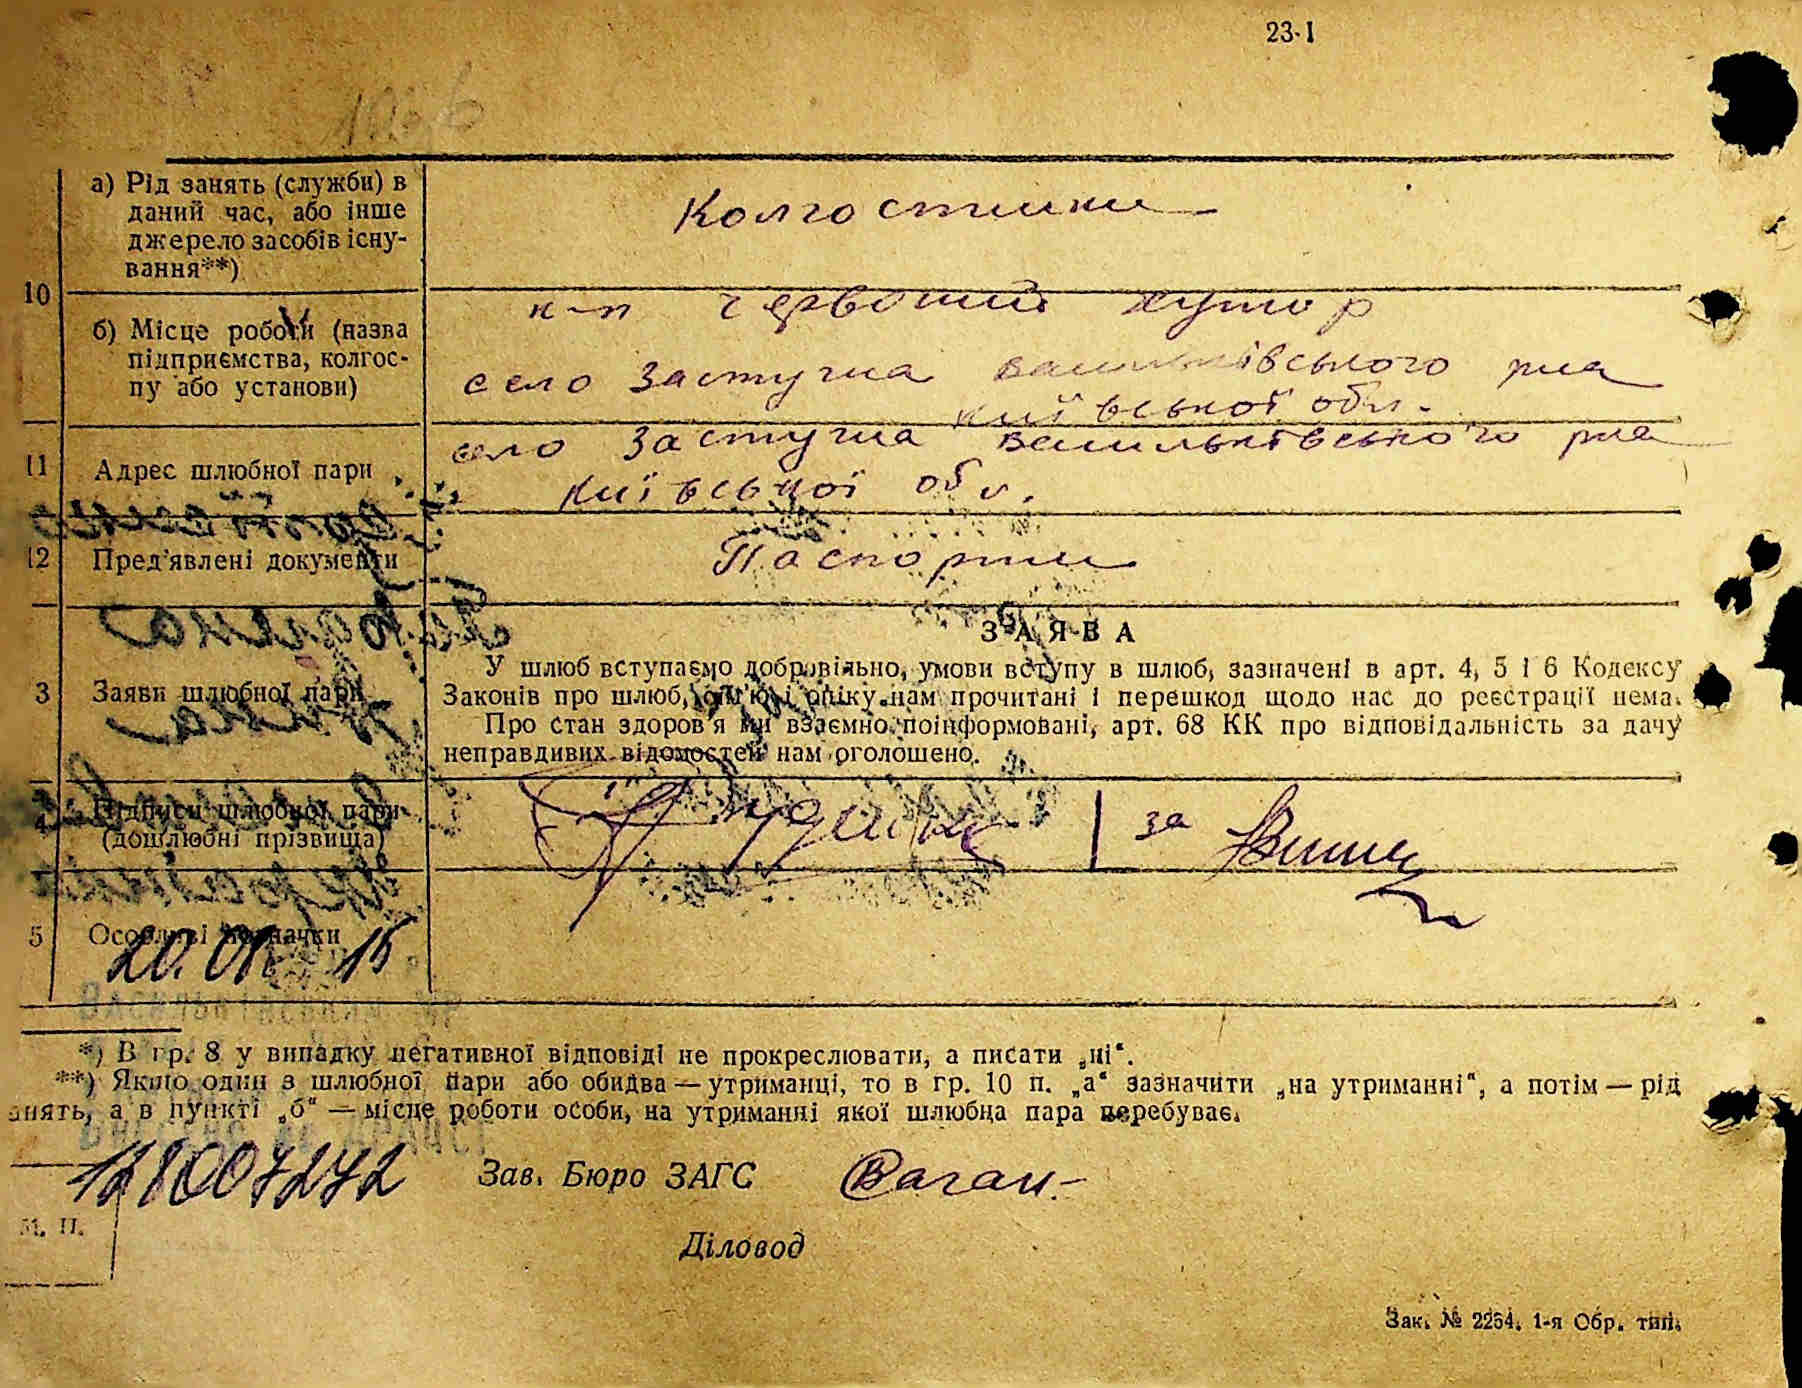 23-І
а) Рід занять (служби) в
даний час, або інше
джерело засобів існу-
вання**)
Колгоспники
10
б) Місце роботи (назва
підприємства, колгос-
пу або установи)
к-п червоний хутор
село Застугна Васильківського р-на
київської обл.
11 Адрес шлюбної пари
село Застугна Васильківського р-на
київської обл.
12 Пред'явлені документи
Паспорти
3 Заяви шлюбної пари
ЗАЯВА
У шлюб вступаємо добровільно, умови вступу в шлюб, зазначені в арт. 4, 5 і 6 Кодексу
Законів про шлюб, сім'ю і опіку нам прочитані і перешкод щодо нас до реєстрації нема.
Про стан здоров'я ми взаємно поінформовані, арт. 68 КК про відповідальність за дачу
неправдивих відомостей нам оголошено.
4 Підписи шлюбної пари
(дошлюбні прізвища)
за
5 Особливі позначки
20.01 15
*) В гр. 8 у випадку негативної відповіді не прокреслювати, а писати „ні“.
**) Якщо один з шлюбної пари або обидва — утриманці, то в гр. 10 п. „а“ зазначити „на утриманні“, а потім — рід
анять, а в пункті „б“ — місце роботи особи, на утриманні якої шлюбна пара перебуває.
128007272
Зав. Бюро ЗАГС
М. П.
Діловод
Зак. № 2264. 1-я Обр. тип.